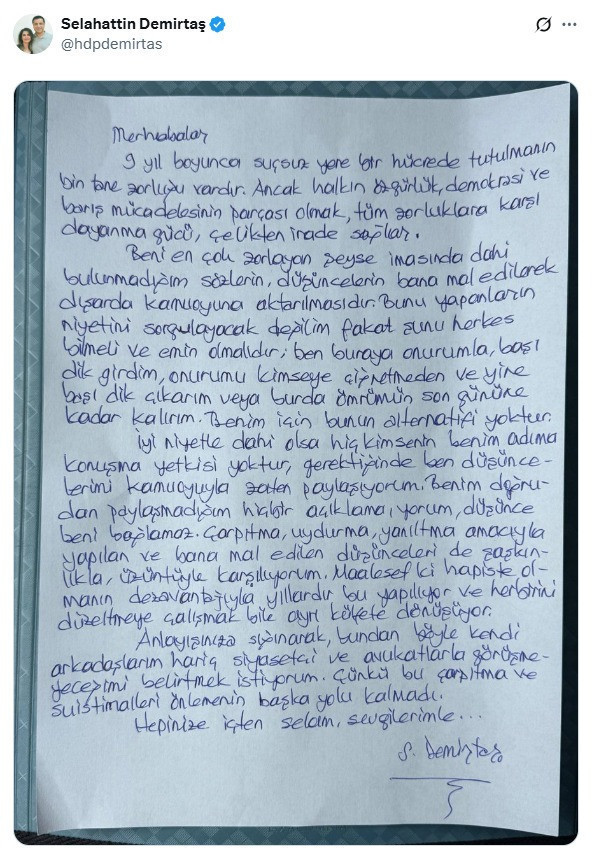 Selahattin Demirtaş
@hdpdemirtas
Merhabalar
9 yıl boyunca suçsuz yere bir hücrede tutulmanın
bin tane zorluğu vardır. Ancak halkın özgürlük, demokrasi ve
barış mücadelesinin parçası olmak, tüm zorluklara karşı
dayanma gücü, çelikten irade sağlar.
Beni en çok zorlayan şeyse imasında dahi
bulunmadığım sözlerin, düşüncelerin bana mal edilerek
dışarda kamuoyuna aktarılmasıdır. Bunu yapanların
niyetini sorgulayacak değilim fakat şunu herkes
bilmeli ve emin olmalıdır; ben buraya onurumla, başı
dik girdim, onurumu kimseye çiğnetmeden ve yine
başı dik çıkarım veya burda ömrümün son gününe
kadar kalırım. Benim için bunun alternatifi yoktur.
İyi niyetle dahi olsa hiç kimsenin benim adıma
konuşma yetkisi yoktur, gerektiğinde ben düşünce-
lerimi kamuoyuyla zaten paylaşıyorum. Benim doğru-
dan paylaşmadığım hiçbir açıklama, yorum, düşünce
beni bağlamaz. Çarpıtma, uydurma, yanıltma amacıyla
yapılan ve bana mal edilen düşünceleri de şaşkın-
lıkla, üzüntüyle karşılıyorum. Maalesef ki hapiste ol-
manın dezavantajıyla yıllardır bu yapılıyor ve herbirini
düzeltmeye çalışmak bile ayrı külfete dönüşüyor.
Anlayışınıza sığınarak, bundan böyle kendi
arkadaşlarım hariç siyasetçi ve avukatlarla görüşme-
yeceğimi belirtmek istiyorum. Çünkü bu çarpıtma ve
suistimalleri önlemenin başka yolu kalmadı.
Hepinize içten selam, sevgilerimle...
S. Demirtaş